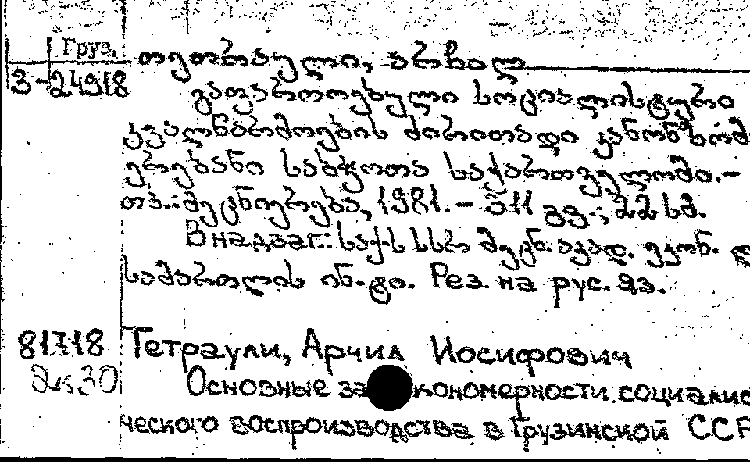 Груз.
თეთრაული, არჩილ
3-24918
გაფართოებული სოციალისტური
კვალწარმოების ძირითადი კანონზომ
იერებანი საბჭოთა საქართველოში.-
თბ.: მეცნიერება, 1981.- 311 გვ.; 22 სმ.
В надзаг.: საქ.სსრ მეცნ. აკად. ეკონ. დ
სამართლის ინ-ტი. Рез. на рус. яз.
81718 Тетраули, Арчил Иосифович
Эк30 Основные закономерности социалис
ческого воспроизводства в Грузинской ССР